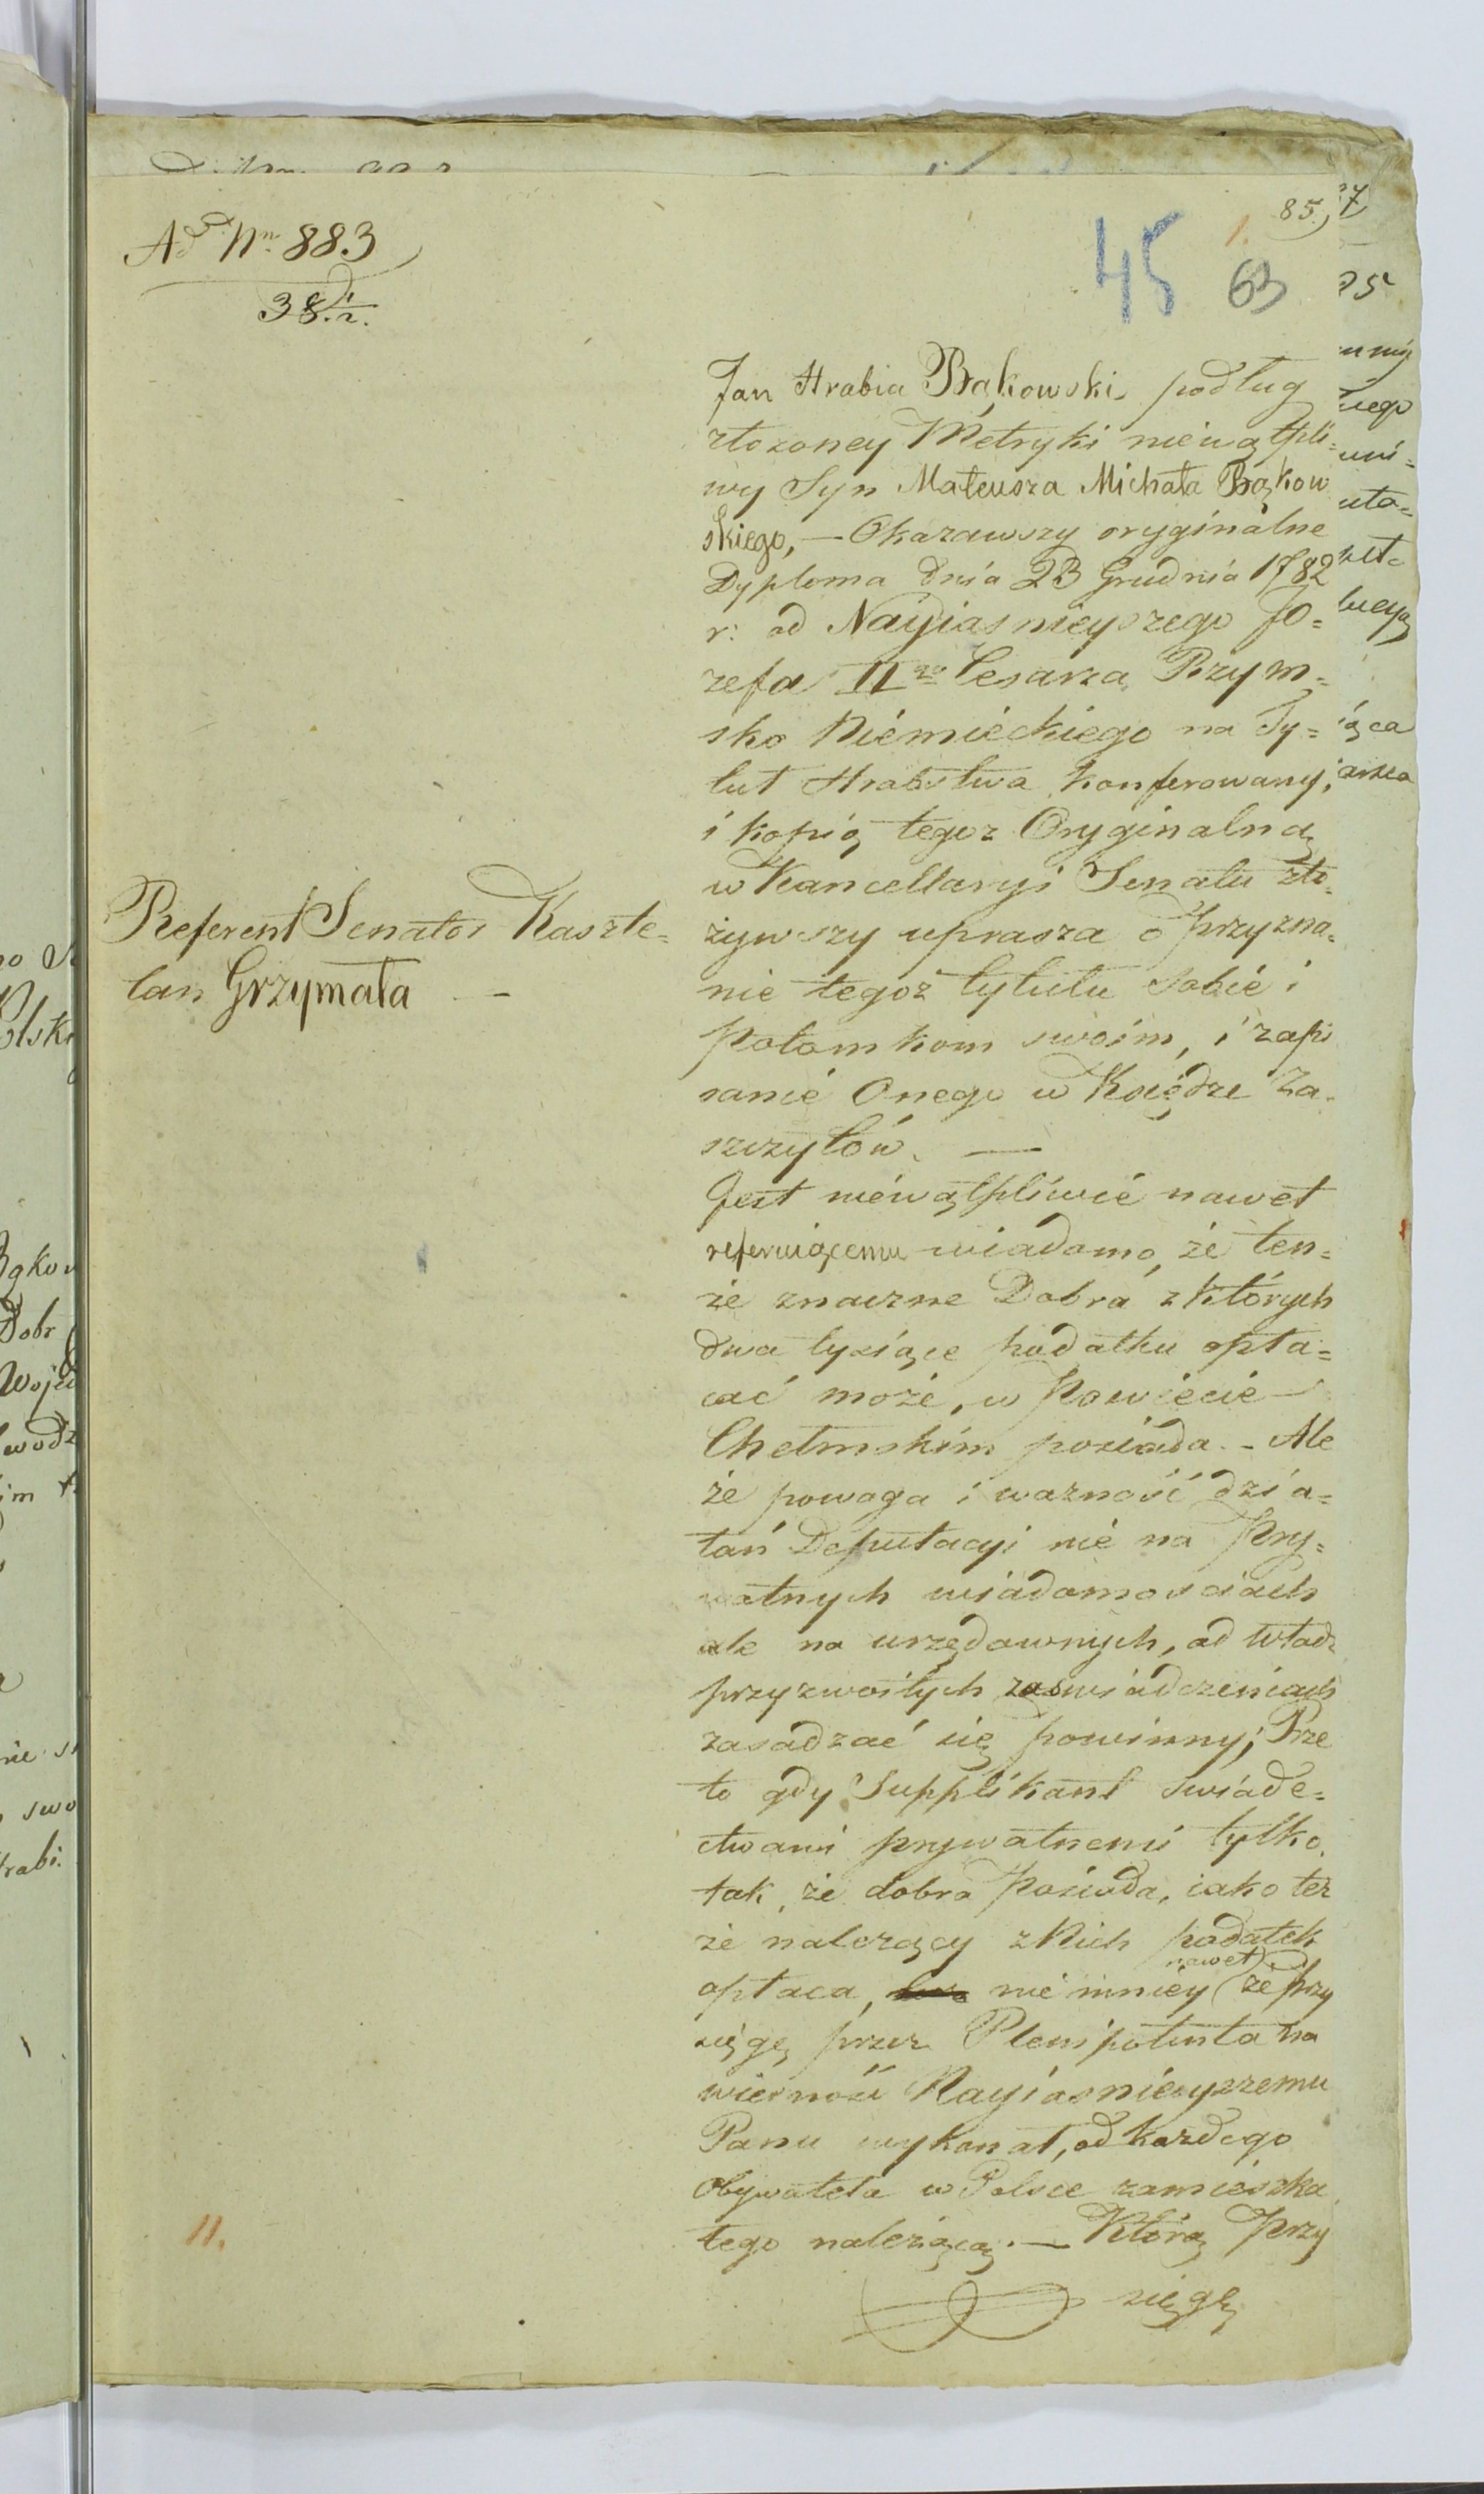 85.
Ad Nrn 883
38 1/2.
45 1. 63
Jan Hrabia Bąkowski podług
złożoney Metryki niewątpli=
wy Syn Mateusza Michała Bąkow
skiego, — Okazawszy oryginalne
Dyploma dnia 23 Grudnia 1782
r: od Nayjaśnieyszego Jó=
zefa II go Cesarza Rzym=
sko Niemieckiego na Ty=
tuł Hrabstwa konferowany,
i kopią tegoż Oryginalną
w Kancellaryi Senatu zło=
Referent Senator Kaszte=
lan Grzymała —
żywszy uprasza o przyzna=
nie tegoż tytułu sobie i
potomkom swoim, i zapi
sanie Onego w Księdze Za=
szczytów. —
Jest niewątpliwie nawet
referuiącemu wiadomo, że ten=
że znaczne Dobra z których
dwa tysiące podatku opła=
cać może, w Powiecie
Chełmskim posiada. - Ale
że powaga i ważność dzia=
łań Deputacyi nie na Pry=
watnych wiadomościach
ale na urzędownych, od Władz
przyzwoitych zaświadczeniach
zasadzać się powinny; Prze
to gdy Supplikant świade=
ctwami prywatnemi tylko,
tak, że dobra posiada, iako też
że należący z Nich podatek
opłaca, nie mniey nawet że przy
sięgę przez Plenipotenta na
wierność Nayjaśnieyszemu
Panu wykonał, od każdego
Obywatela w Polsce zamieszka
łego należącą. — Którą Przy
sięgę
11.